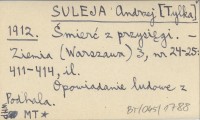 SULEJA Andrzej [Tylka]
1912. Śmierć z przysięgi. –
Ziemia (Warszawa) 3, nr 24-25:
411-414, il.
Opowiadanie ludowe z
Podhala.
MT*
BT/045/1788